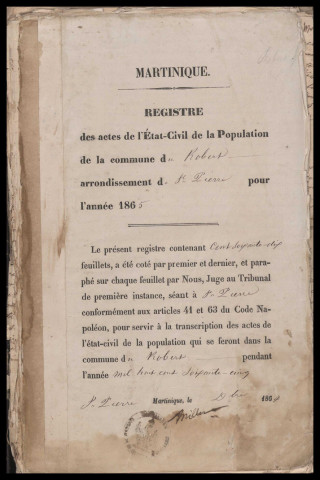 MARTINIQUE.
REGISTRE
des actes de l'État-Civil de la Population
de la commune du Robert
arrondissement de St Pierre pour
l'année 1865
Le présent registre contenant Cent soixante-dix
feuillets, a été coté par premier et dernier, et para-
phé sur chaque feuillet par Nous, Juge au Tribunal
de première instance, séant à St Pierre
conformément aux articles 41 et 63 du Code Na-
poléon, pour servir à la transcription des actes de
l'état-civil de la population qui se feront dans la
commune du Robert pendant
l'année mil huit cent soixante-cinq
St Pierre Martinique, le 186